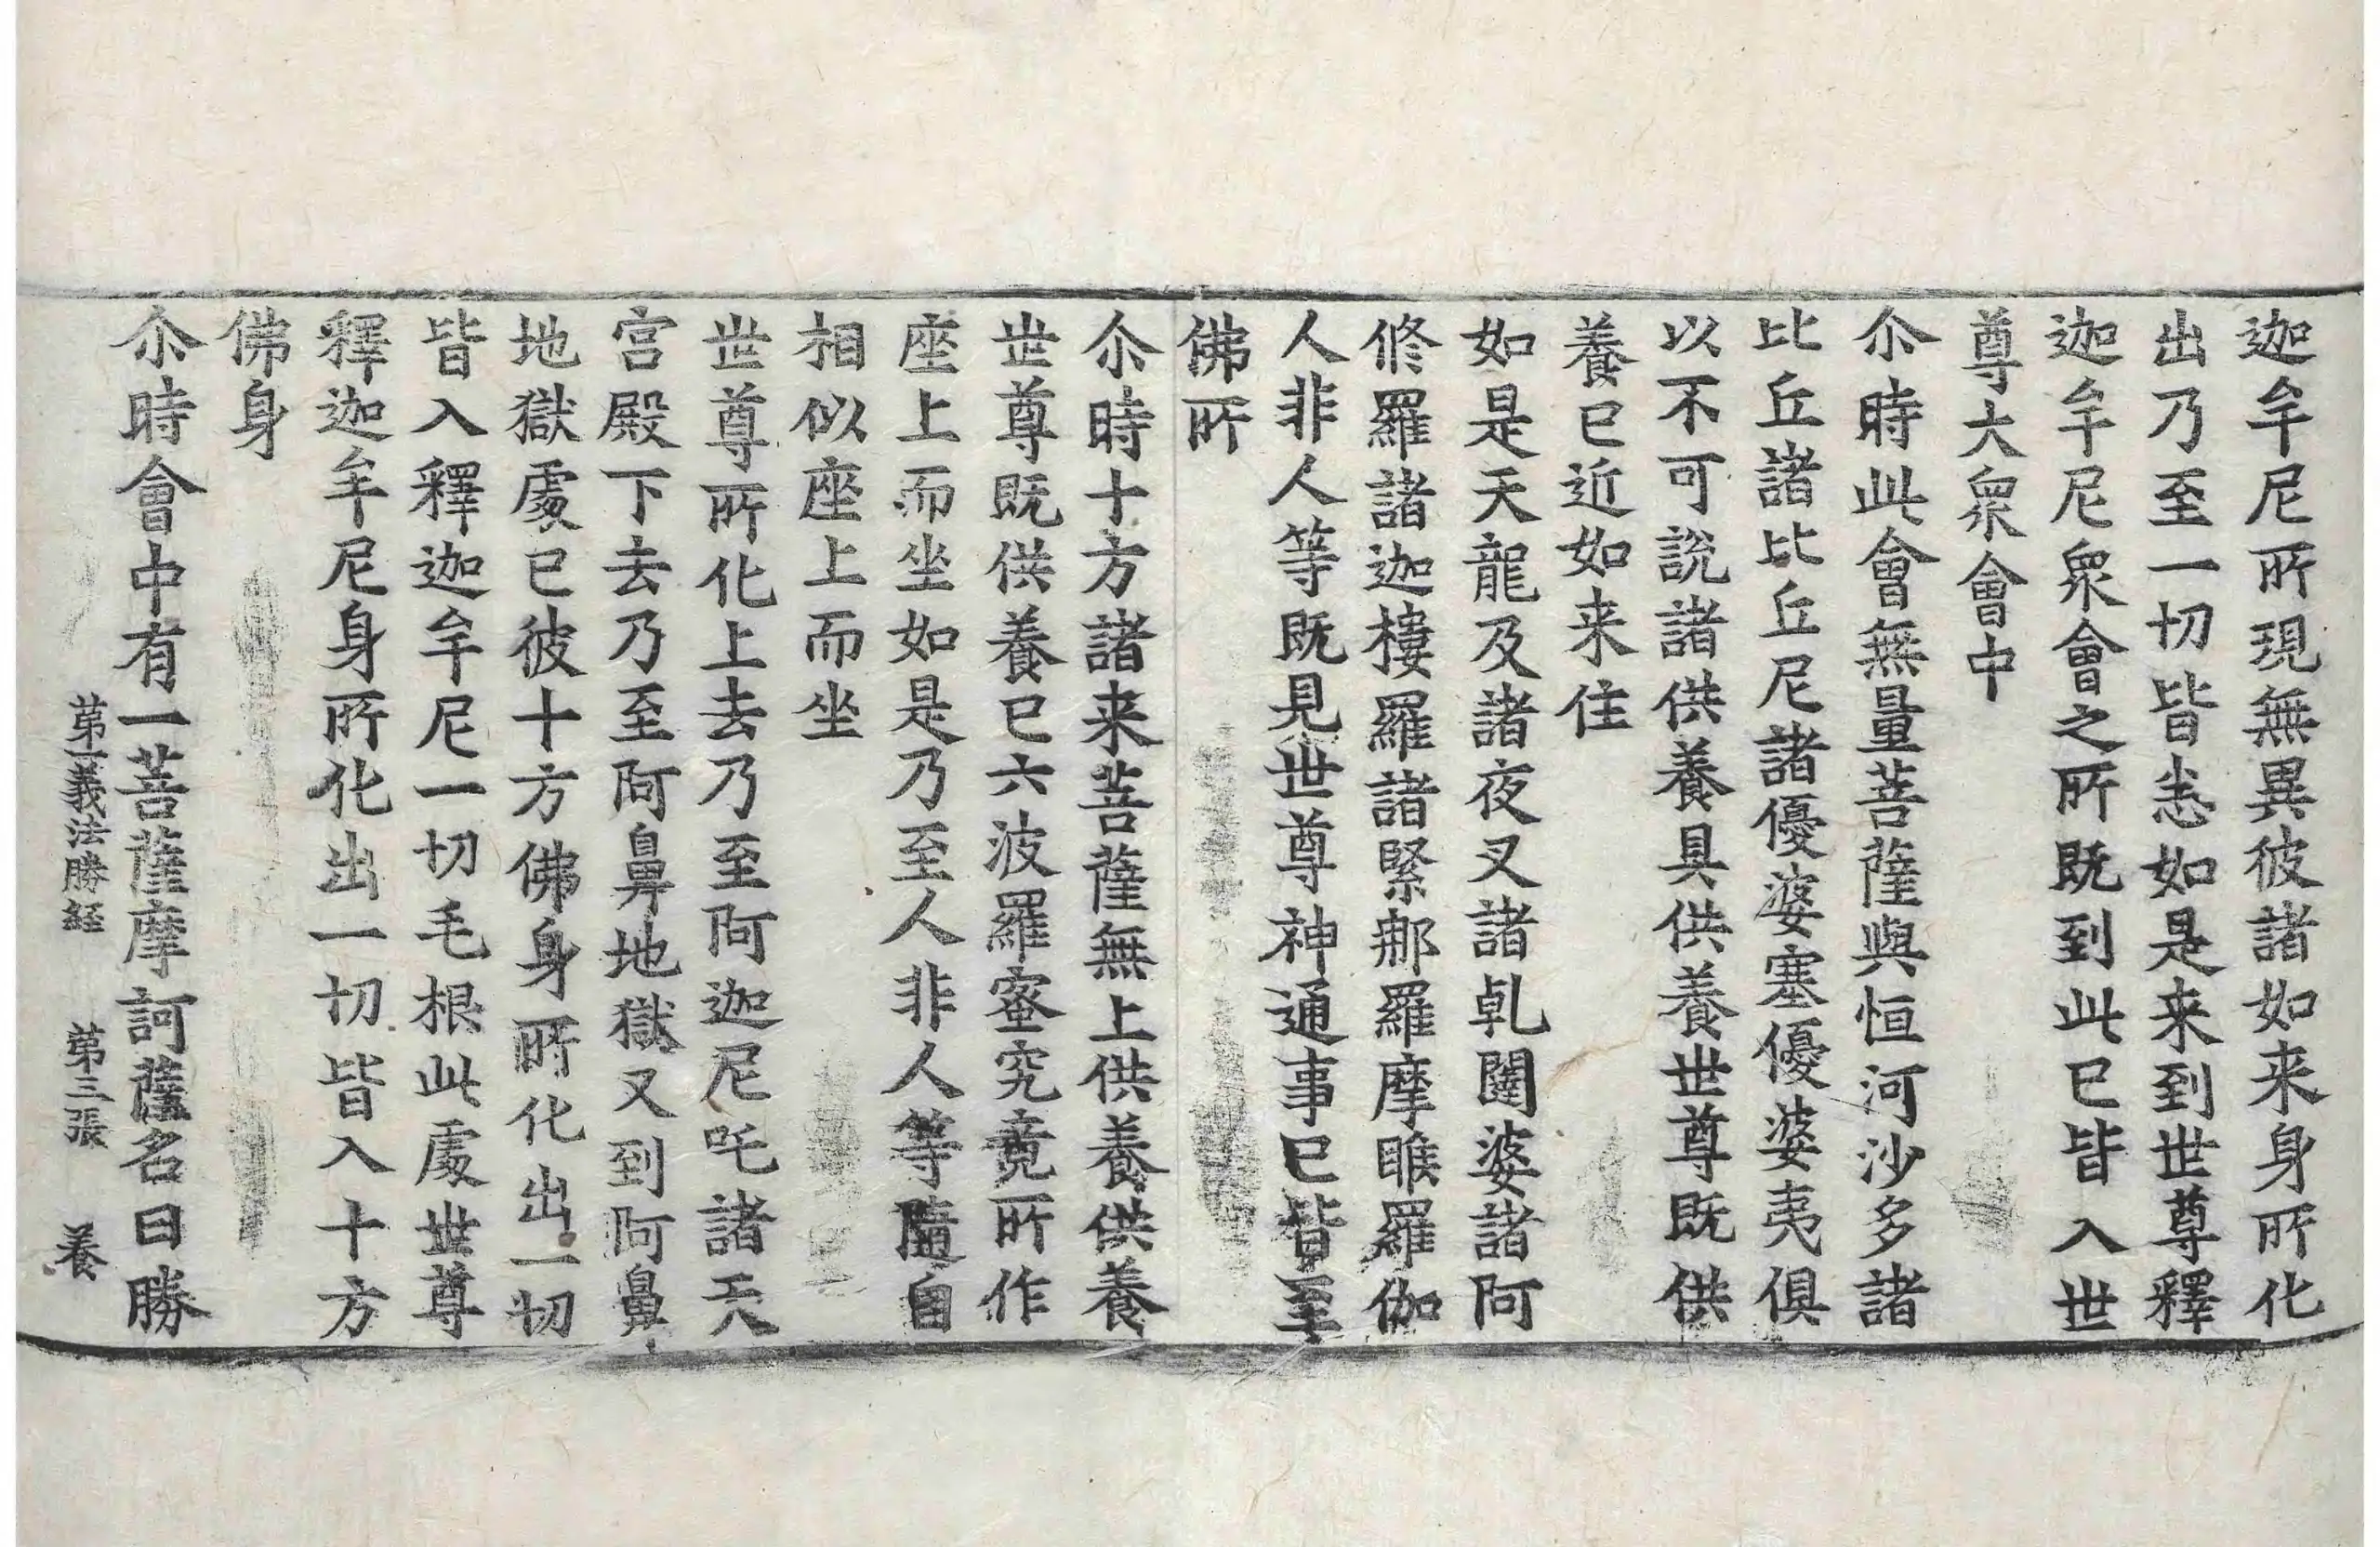 迦牟尼所現無異彼諸如来身所化
出乃至一切皆悉如是来到世尊釋
迦牟尼衆會之所既到此已皆入世
尊大衆會中
尒時此會無量菩薩與恒河沙多諸
比丘諸比丘尼諸優婆塞優婆夷俱
以不可說諸供養具供養世尊既供
養已近如来住
如是天龍及諸夜叉諸乹闥婆諸阿
修羅諸迦樓羅諸緊那羅摩睺羅伽
人非人等既見世尊神通事已皆至
佛所
尒時十方諸来菩薩無上供養供養
世尊既供養已六波羅蜜究竟所作
座上而坐如是乃至人非人等隨自
相似座上而坐
世尊所化上去乃至阿迦尼吒諸天
宮殿下去乃至阿鼻地獄又到阿鼻
地獄處已彼十方佛身所化出一切
皆入釋迦牟尼一切毛根此處世尊
釋迦牟尼身所化出一切皆入十方
佛身
尒時會中有一菩薩摩訶薩名曰勝
苐一義法勝経 苐三張 養